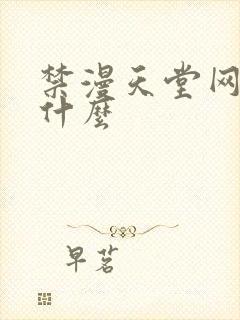 禁漫天堂网
什麼
早茗